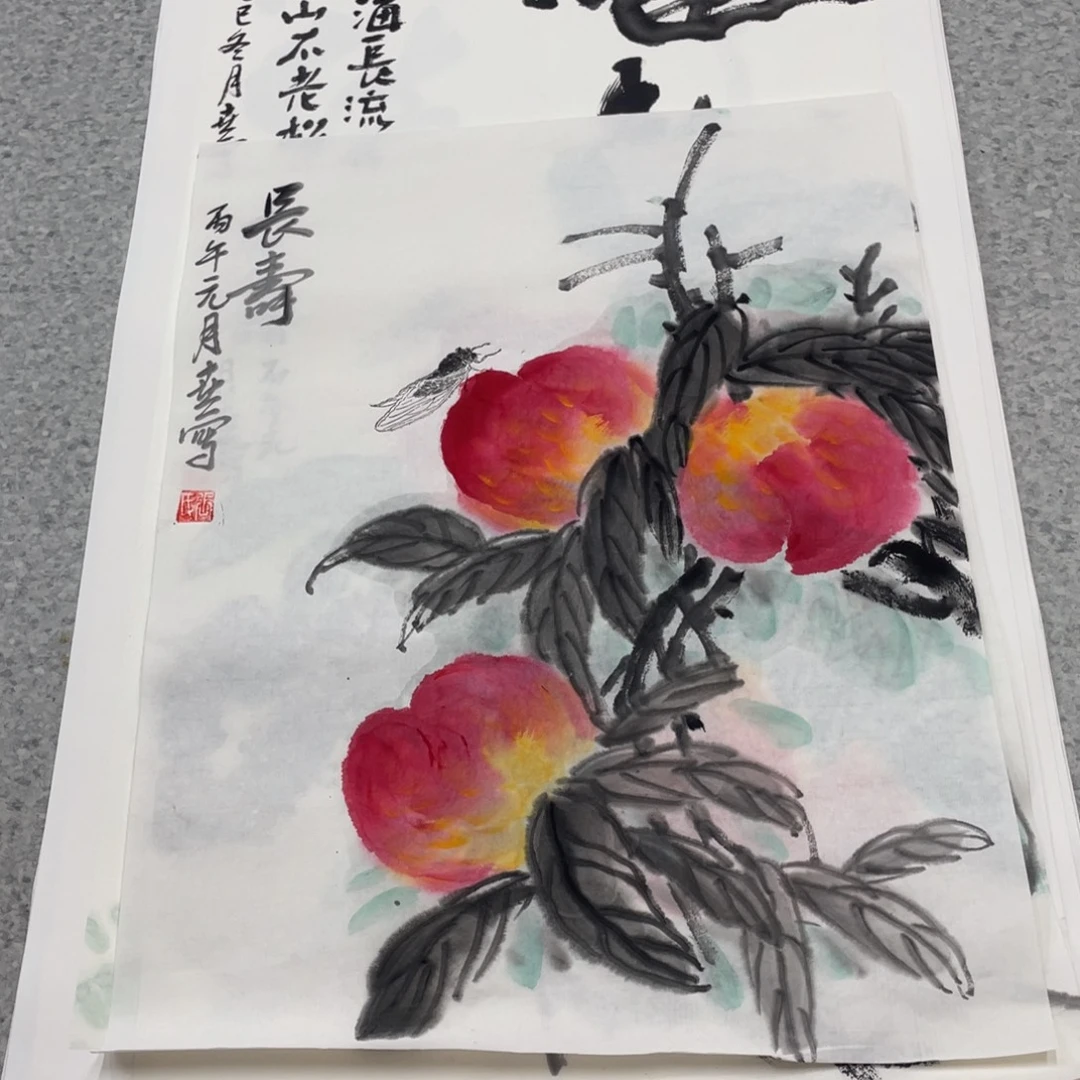 海長流
山不老松
巳冬月堯
長壽
丙午元月堯寫